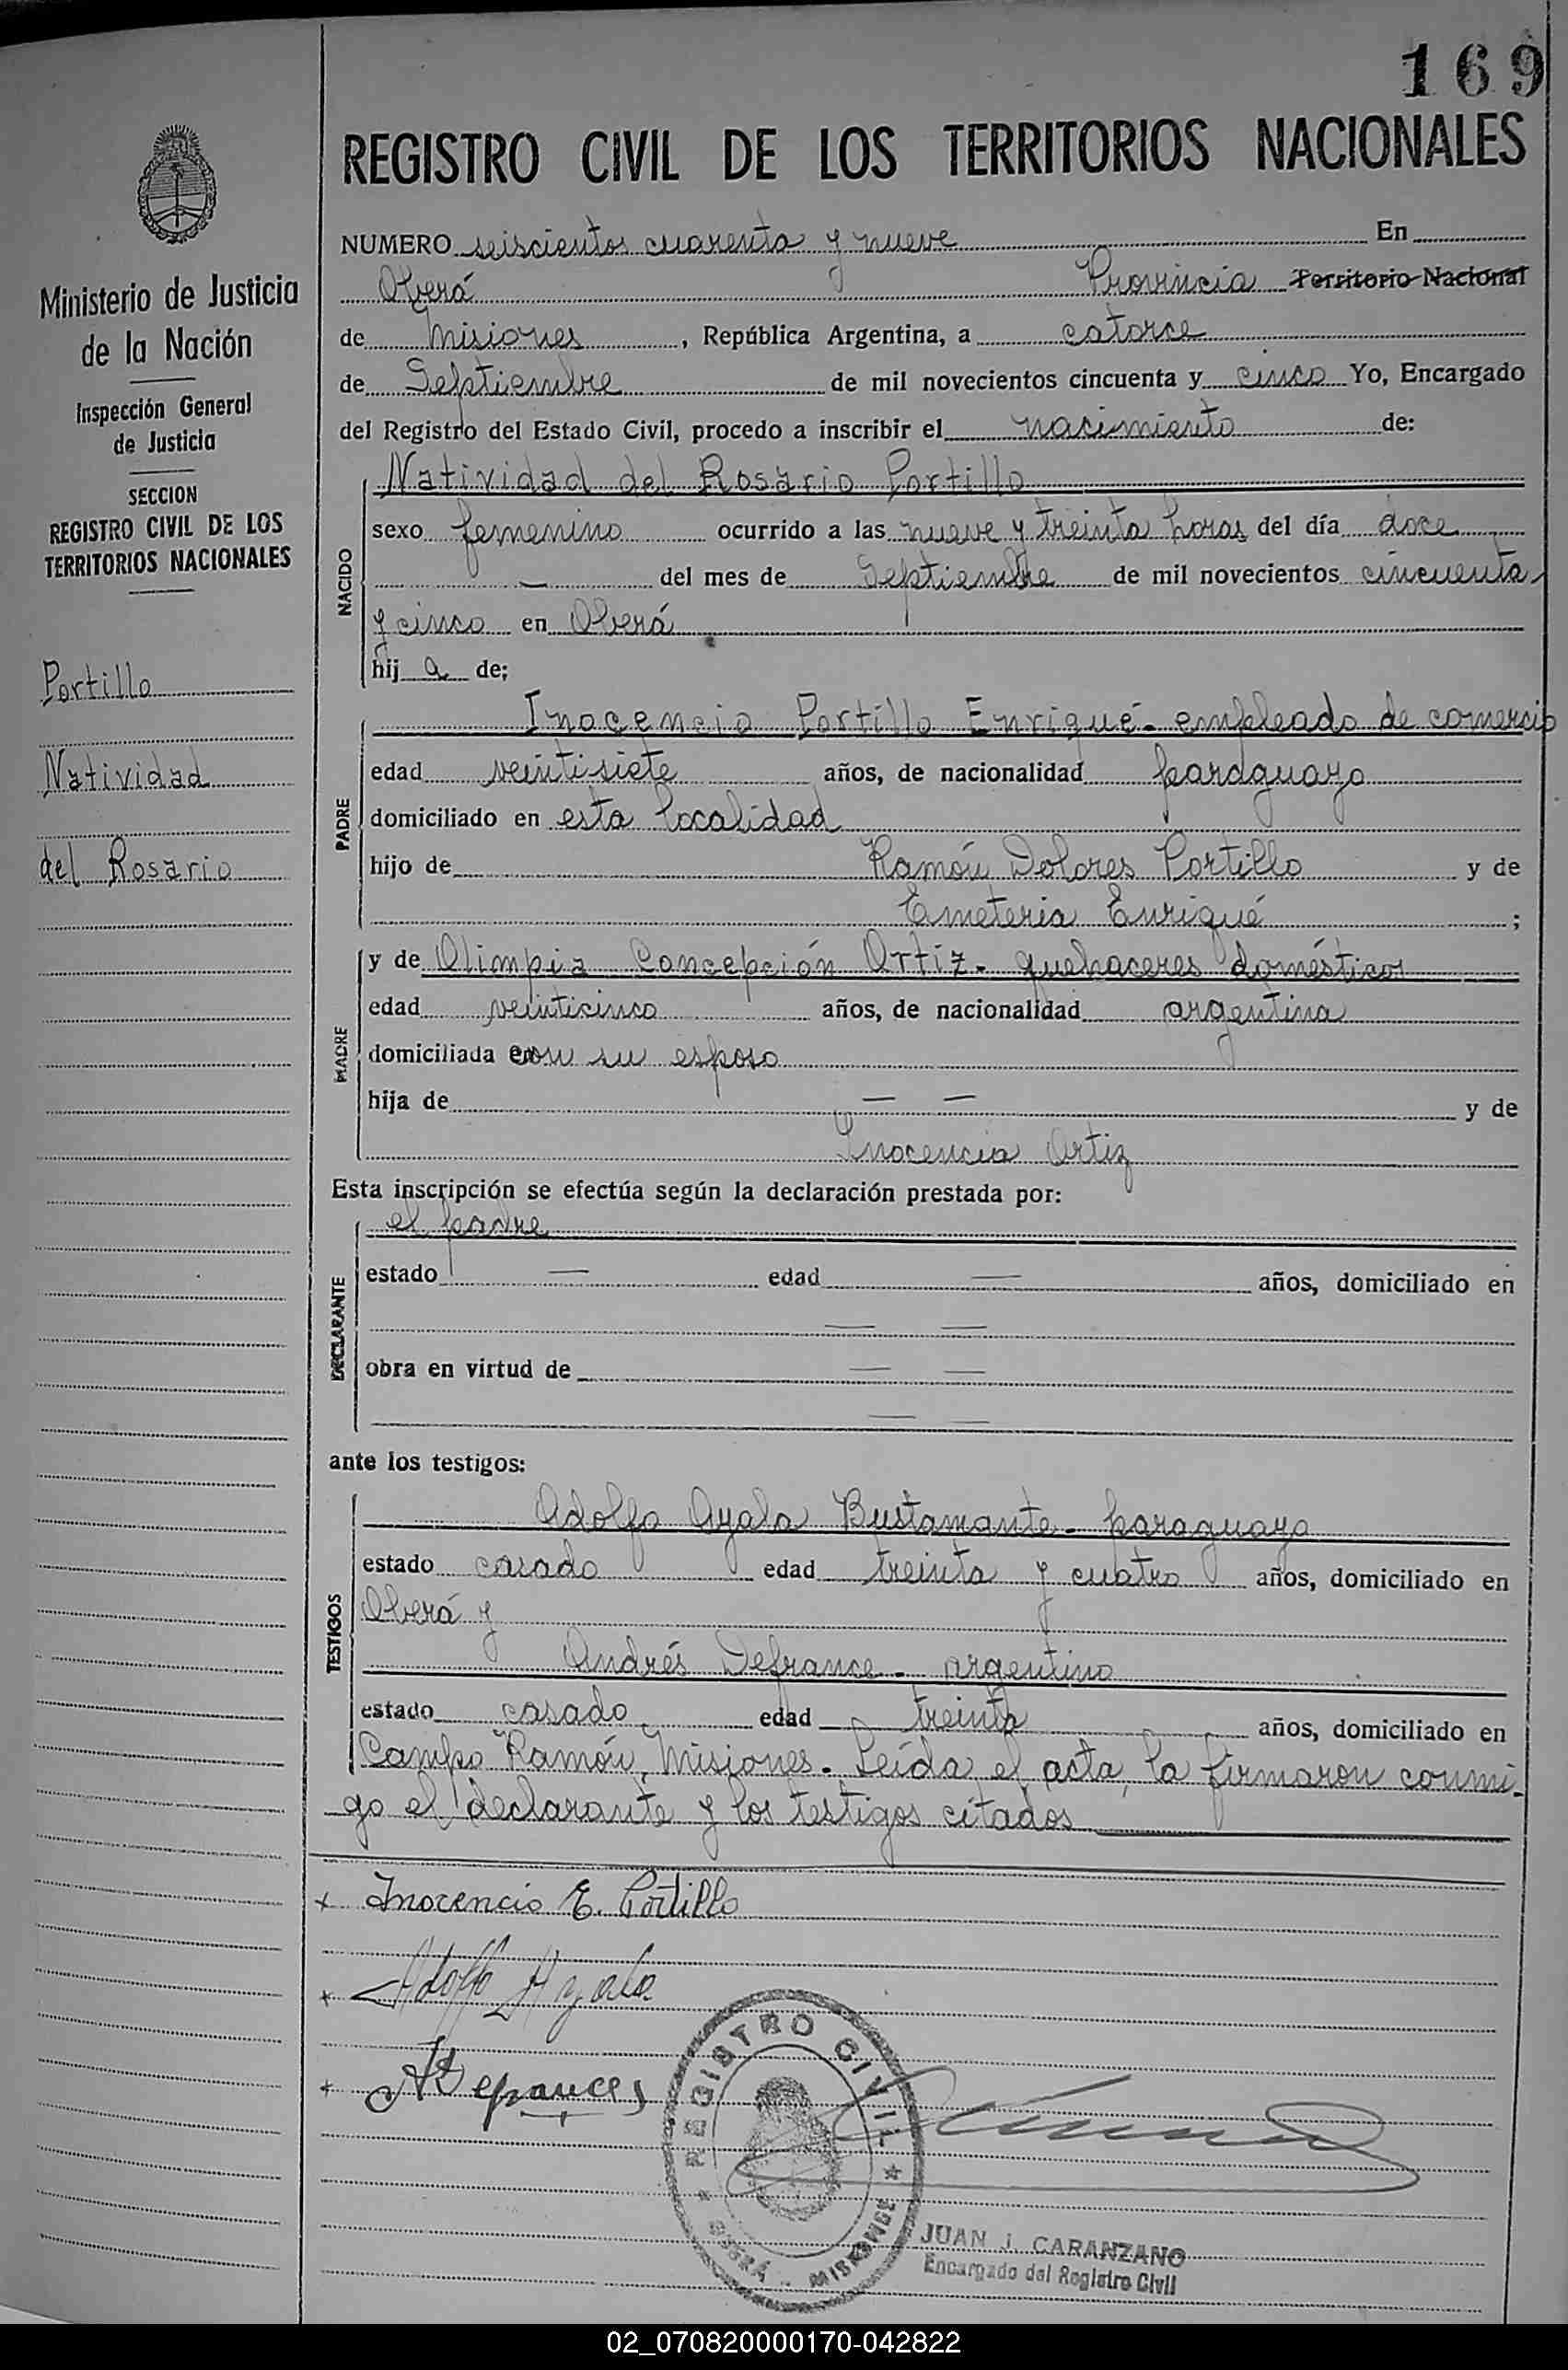 169
REGISTRO CIVIL DE LOS TERRITORIOS NACIONALES
Ministerio de Justicia
de la Nación
Inspección General
de Justicia
SECCION
REGISTRO CIVIL DE LOS
TERRITORIOS NACIONALES
Portillo
Natividad
del Rosario
NUMERO seiscientos cuarenta y nueve En
Oberá Provincia Territorio Nacional
de Misiones, República Argentina, a catorce
de Septiembre de mil novecientos cincuenta y cinco Yo, Encargado
del Registro del Estado Civil, procedo a inscribir el nacimiento de:
NACIDO
Natividad del Rosario Portillo
sexo femenino ocurrido a las nueve y treinta horas del día doce
— del mes de Septiembre de mil novecientos cincuenta
y cinco en Oberá
hij a de;
PADRE
Inocencio Portillo Enriqué - empleado de comercio
edad veintisiete años, de nacionalidad paraguayo
domiciliado en esta localidad
hijo de Ramón Dolores Portillo y de
Emeteria Enriqué ;
MADRE
y de Olimpia Concepción Ortiz - quehaceres domésticos
edad veinticinco años, de nacionalidad argentina
domiciliada con su esposo
hija de — — y de
Inocencia Ortiz
Esta inscripción se efectúa según la declaración prestada por:
DECLARANTE
el padre
estado — edad — años, domiciliado en
— —
obra en virtud de — —
— —
ante los testigos:
TESTIGOS
Adolfo Ayala Bustamante - paraguayo
estado casado edad treinta y cuatro años, domiciliado en
Oberá y
Andrés Defrance - argentino
estado casado edad treinta años, domiciliado en
Campo Ramón, Misiones. Leída el acta, la firmaron conmi-
go el declarante y los testigos citados
x Inocencio E. Portillo
x Adolfo Ayala
x
REGISTRO CIVIL
OBERÁ - MISIONES
JUAN J. CARANZANO
Encargado del Registro Civil
02_070820000170-042822